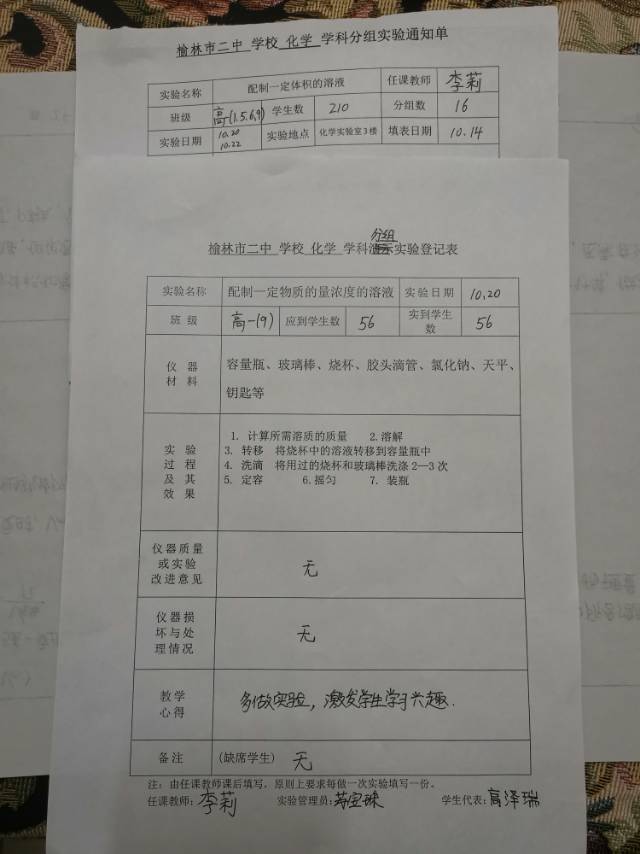 榆林市二中 学校 化学 学科分组实验通知单
实验名称 配制一定体积的溶液 任课教师 李莉
班级 高一(1.5.6,9) 学生数 210 分组数 16
实验日期 10.20 10.22 实验地点 化学实验室3楼 填表日期 10.14
分组
榆林市二中 学校 化学 学科演示实验登记表
实验名称 配制一定物质的量浓度的溶液 实验日期 10,20
班 级 高一(9) 应到学生数 56 实到学生数 56
仪 器 材 料 容量瓶、玻璃棒、烧杯、胶头滴管、氯化钠、天平、
钥匙等
实 验 过 程 及 其 效 果
1. 计算所需溶质的质量 2.溶解
3. 转移 将烧杯中的溶液转移到容量瓶中
4. 洗滴 将用过的烧杯和玻璃棒洗涤2—3次
5. 定容 6.摇匀 7. 装瓶
仪器质量
或实验
改进意见 无
仪器损
坏与处
理情况 无
教学
心得 多做实验，激发学生学习兴趣.
备注 (缺席学生) 无
注：由任课教师课后填写，原则上要求每做一次实验填写一份。
任课教师：李莉 实验管理员： 学生代表：高泽瑞